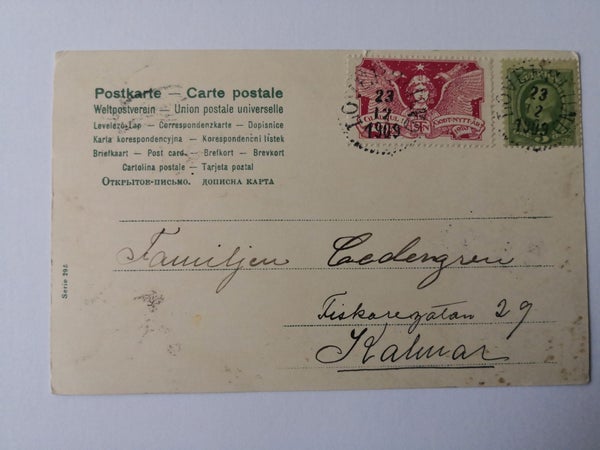 Postkarte — Carte postale
Weltpostverein — Union postale universelle
Levelező-Lap — Correspondenzkarte — Dopisnice
Karta korespondencyjna — Korespondenční lístek
Briefkaart — Post card — Brefkort — Brevkort
Cartolina postale — Tarjeta postal
Открытое-письмо. дописна карта
23
12
1909
GODT-NYTT-ÅR
23
2
1909
Familjen Cedergren
Fiskaregatan 29
Kalmar
Serie 295